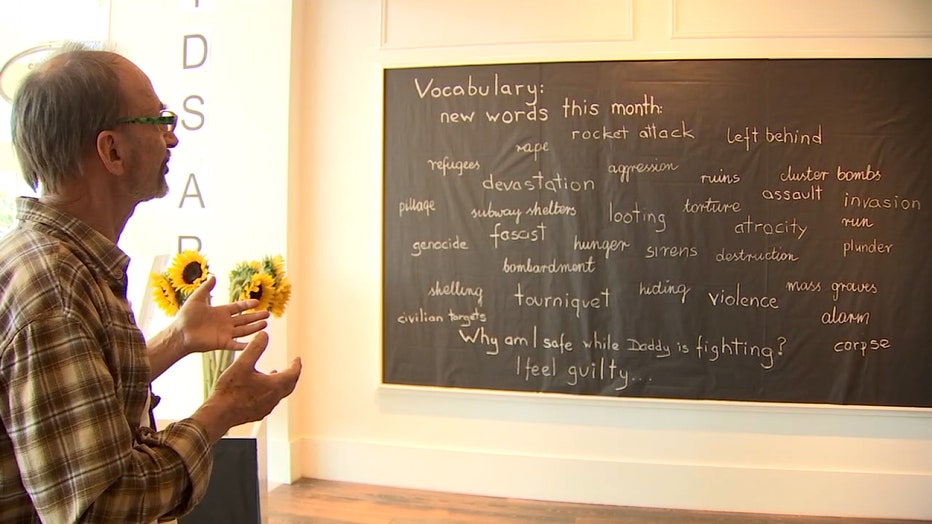 D
S
A
R
Vocabulary:
new words this month:
rocket attack left behind
rape
refugees aggression ruins cluster bombs
devastation assault invasion
pillage subway shelters looting torture run
fascist atrocity
genocide hunger sirens destruction plunder
bombardment
shelling tourniquet hiding violence mass graves
civilian targets alarm
Why am I safe while Daddy is fighting? corpse
I feel guilty...